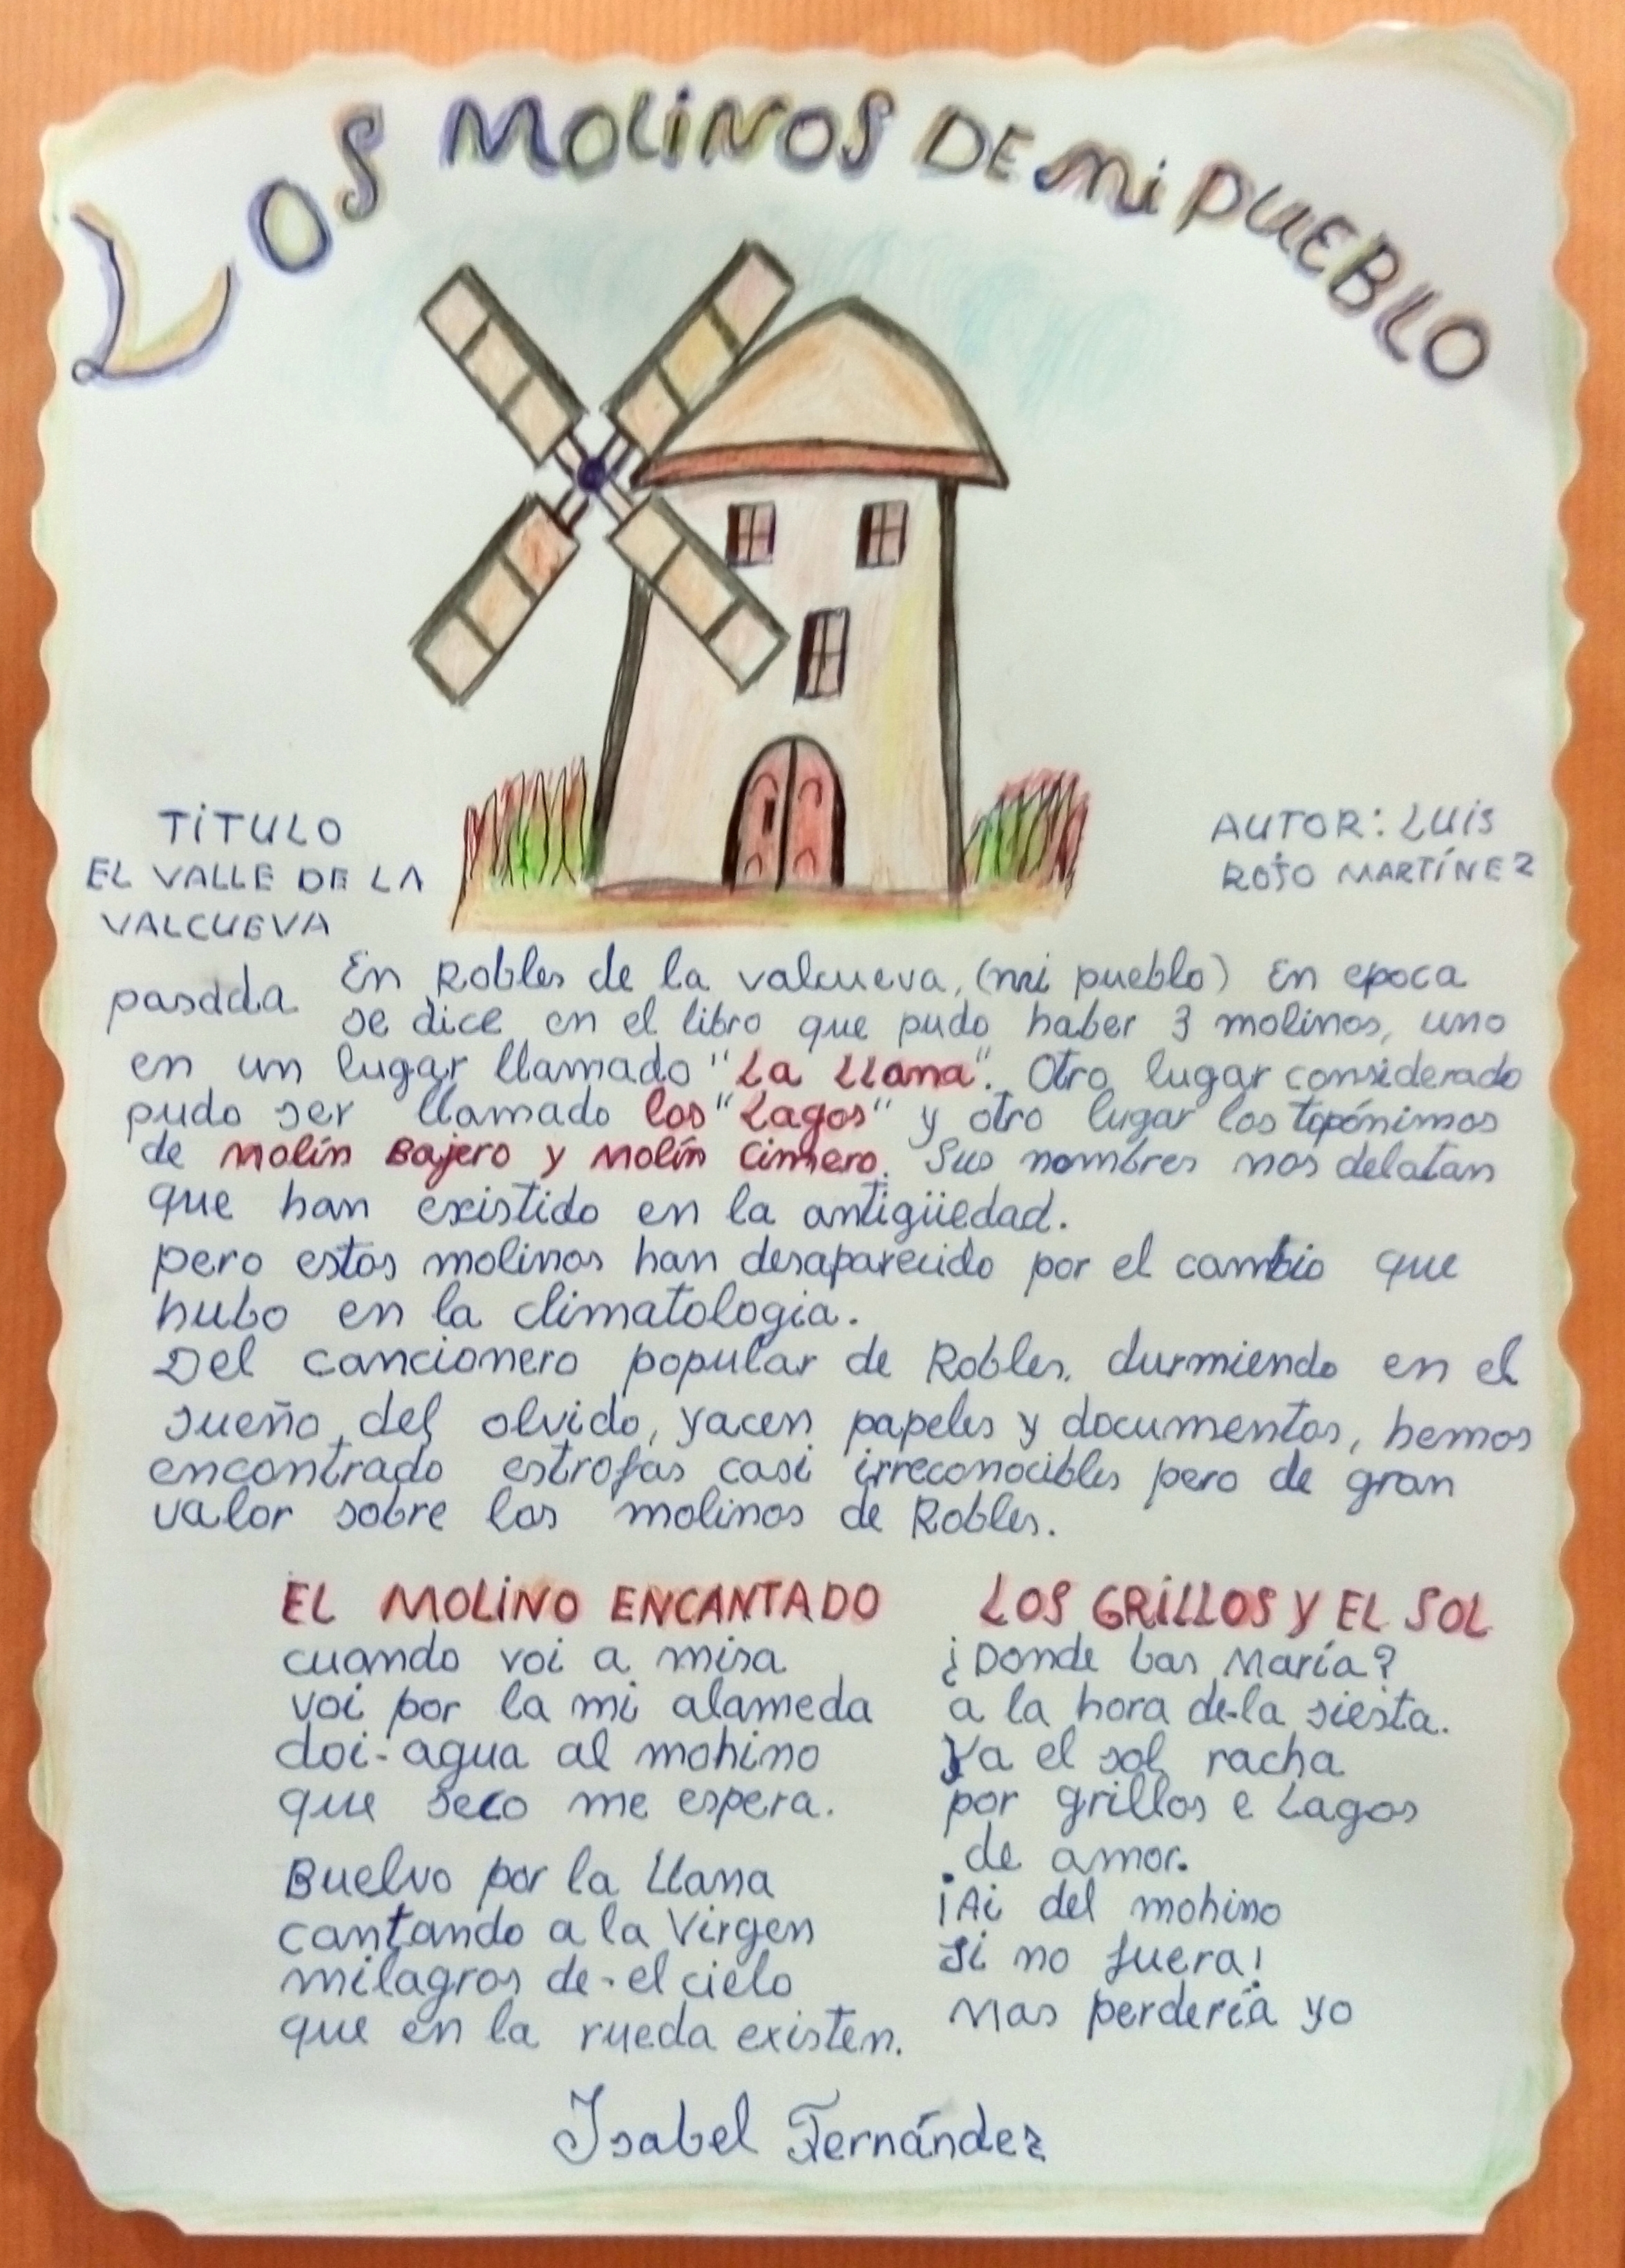 LOS MOLINOS DE MI PUEBLO
TITULO
EL VALLE DE LA
VALCUEVA
AUTOR: LUIS
ROJO MARTÍNEZ
En Robles de la valcueva, (mi pueblo) En epoca
pasada se dice en el libro que pudo haber 3 molinos, uno
en un lugar llamado "La LLana". Otro lugar considerado
pudo ser llamado los "Lagos" y otro lugar los topónimos
de Molín Bajero y Molín Cimero. Sus nombres nos delatan
que han existido en la antigüedad.
pero estos molinos han desaparecido por el cambio que
hubo en la climatologia.
Del cancionero popular de Robles, durmiendo en el
sueño del olvido, yacen papeles y documentos, hemos
encontrado estrofas casi irreconocibles pero de gran
valor sobre los molinos de Robles.
EL MOLINO ENCANTADO
cuando voi a misa
voi por la mi alameda
doi-agua al mohino
que seco me espera.
Buelvo por la Llana
cantando a la Virgen
milagros de-el cielo
que en la rueda existen.
LOS GRILLOS Y EL SOL
¿Donde bas María?
a la hora de-la siesta.
Ya el sol racha
por grillos e Lagos
de amor.
¡Ai del mohino
si no fuera!
Mas perdería yo
Isabel Fernández